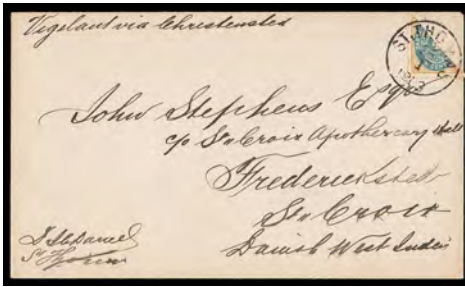 Vigelant via Christensted
ST. THOMAS
1903
John Stephens Esqr
c/o St Croix Apothercary Hall
Frederiksted
St Croix
Danish West Indies
St Thomas